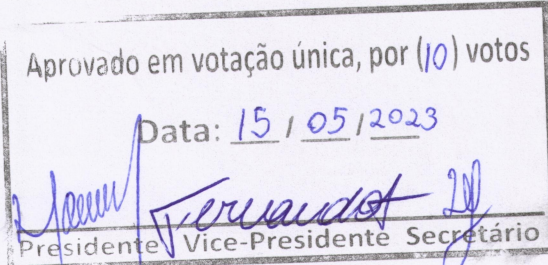 Aprovado em votação única, por (10) votos
Data: 15 / 05 / 2023
Presidente Vice-Presidente Secretário